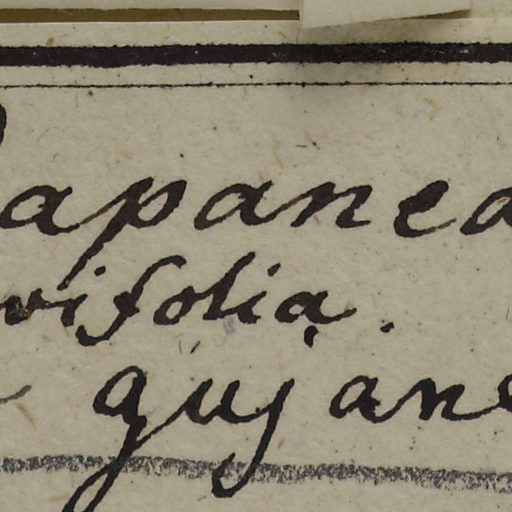 Rapanea
vifolia.
gujane